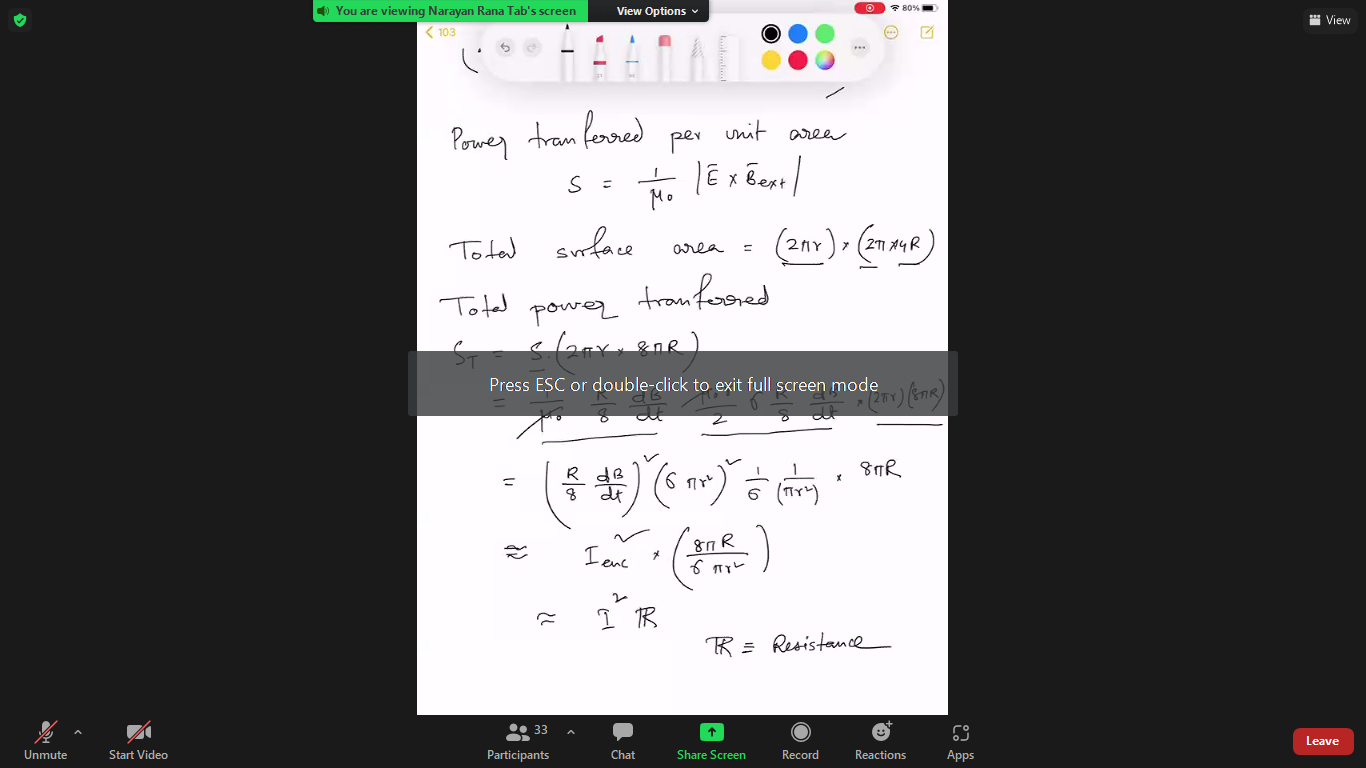 You are viewing Narayan Rana Tab's screen View Options
80%
View
103
Power tranferred per unit area
S = 1/μ₀ |Ē × B̄ext|
Total surface area = (2πr) × (2π×4R)
Total power tranferred
S_T = S.(2πr × 8πR)
Press ESC or double-click to exit full screen mode
= 1/μ₀ R/8 dB/dt μ₀r/2 σ R/8 dB/dt × (2πr)(8πR)
= (R/8 dB/dt)² (σ πr²)² 1/σ 1/(πr²) × 8πR
≈ I_enc² × (8πR/σ πr²)
≈ I² ℝ
ℝ ≡ Resistance
Unmute
Start Video
33
Participants
Chat
Share Screen
Record
Reactions
Apps
Leave